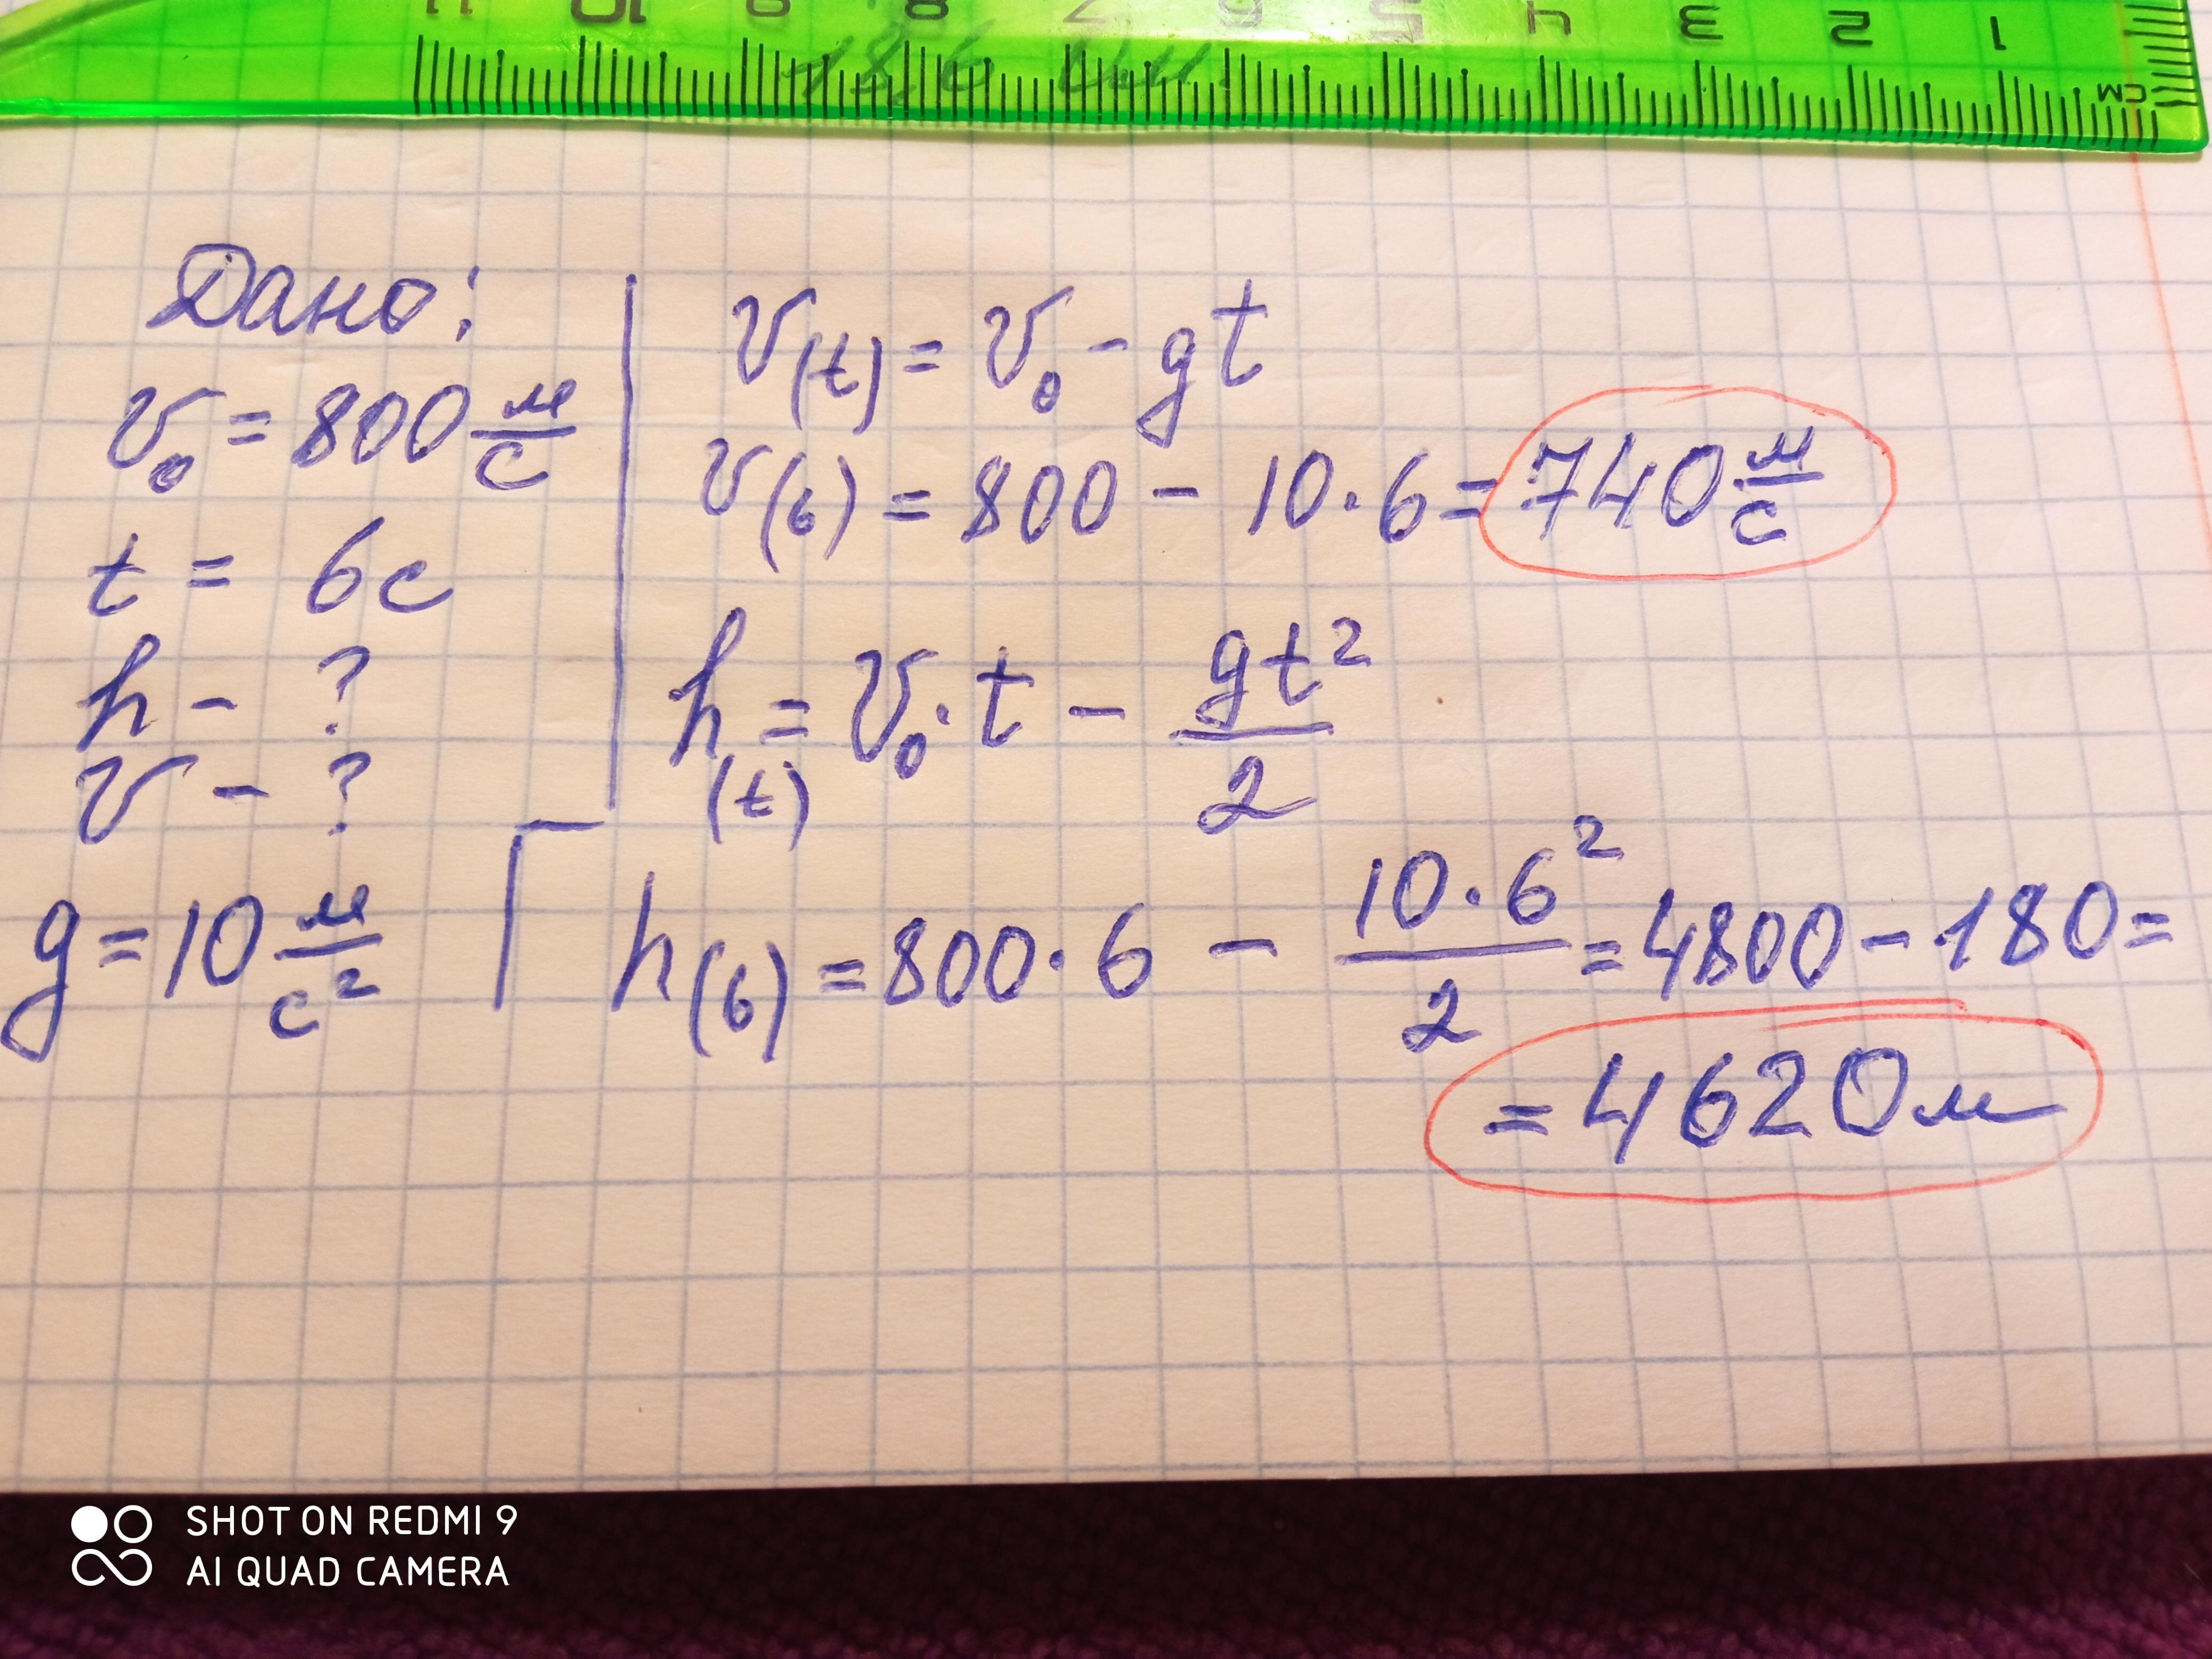 11 10 9 8 7 6 5 4 3 2 1
см
Дано:
v₀ = 800 м/с
t = 6с
h - ?
v - ?
g = 10 м/с²
v(t) = v₀ - gt
v(6) = 800 - 10·6 = 740 м/с
h(t) = v₀·t - gt²/2
h(6) = 800·6 - 10·6²/2 = 4800 - 180 =
= 4620м
SHOT ON REDMI 9
AI QUAD CAMERA